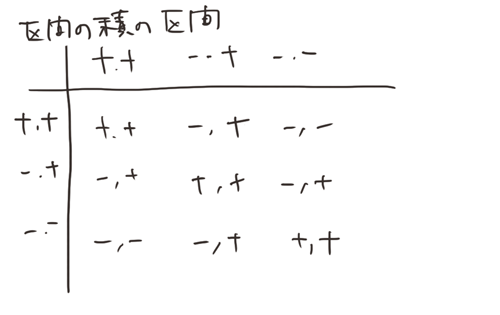 区間の積の区間
+.+ --+ -.-
+,+ +.+ -,+ -,-
-.+ -,+ +,+ -,+
-.- -,- -,+ +,+